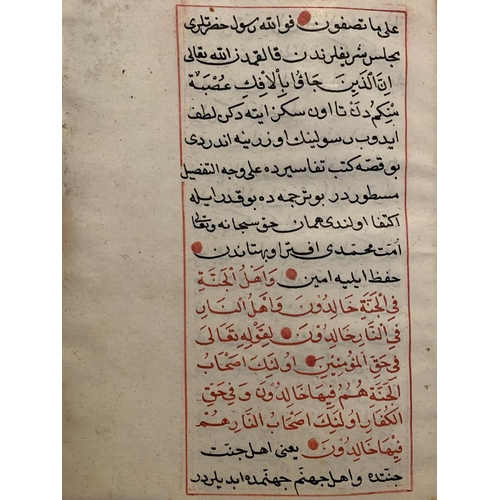 على ما تصفون فوالله رسول حضرتلری
مجلس شریفلرندن قالقمدن الله تعالى
اِنَّ الَّذِينَ جَاؤُا بِالْاِفْكِ عُصْبَةٌ
مِنْكُمْ دن تا اون سکز ایته دکن لطف
ایدوب رسولینك اوزرینه اندردی
بو قصه کتب تفاسیرده علی وجه التفصیل
مسطوردر بو ترجمه ده بو قدر ایله
اکتفا اولندی همان حق سبحانه وتعالى
امت محمدی افترا وبهتاندن
حفظ ایلیه امین وَاَهْلُ الْجَنَّةِ
فِی الْجَنَّةِ خَالِدُونَ وَاَهْلُ النَّارِ
فِی النَّارِ خَالِدُونَ لِقَوْلِهِ تَعَالَى
فِی حَقِّ الْمُؤْمِنِينَ اُولٰئِكَ اَصْحَابُ
الْجَنَّةِ هُمْ فِيهَا خَالِدُونَ وَفِی حَقِّ
الْكُفَّارِ اُولٰئِكَ اَصْحَابُ النَّارِ هُمْ
فِيهَا خَالِدُونَ یعنی اهل جنت
جنتده و اهل جهنم جهنمده ابدیلردر